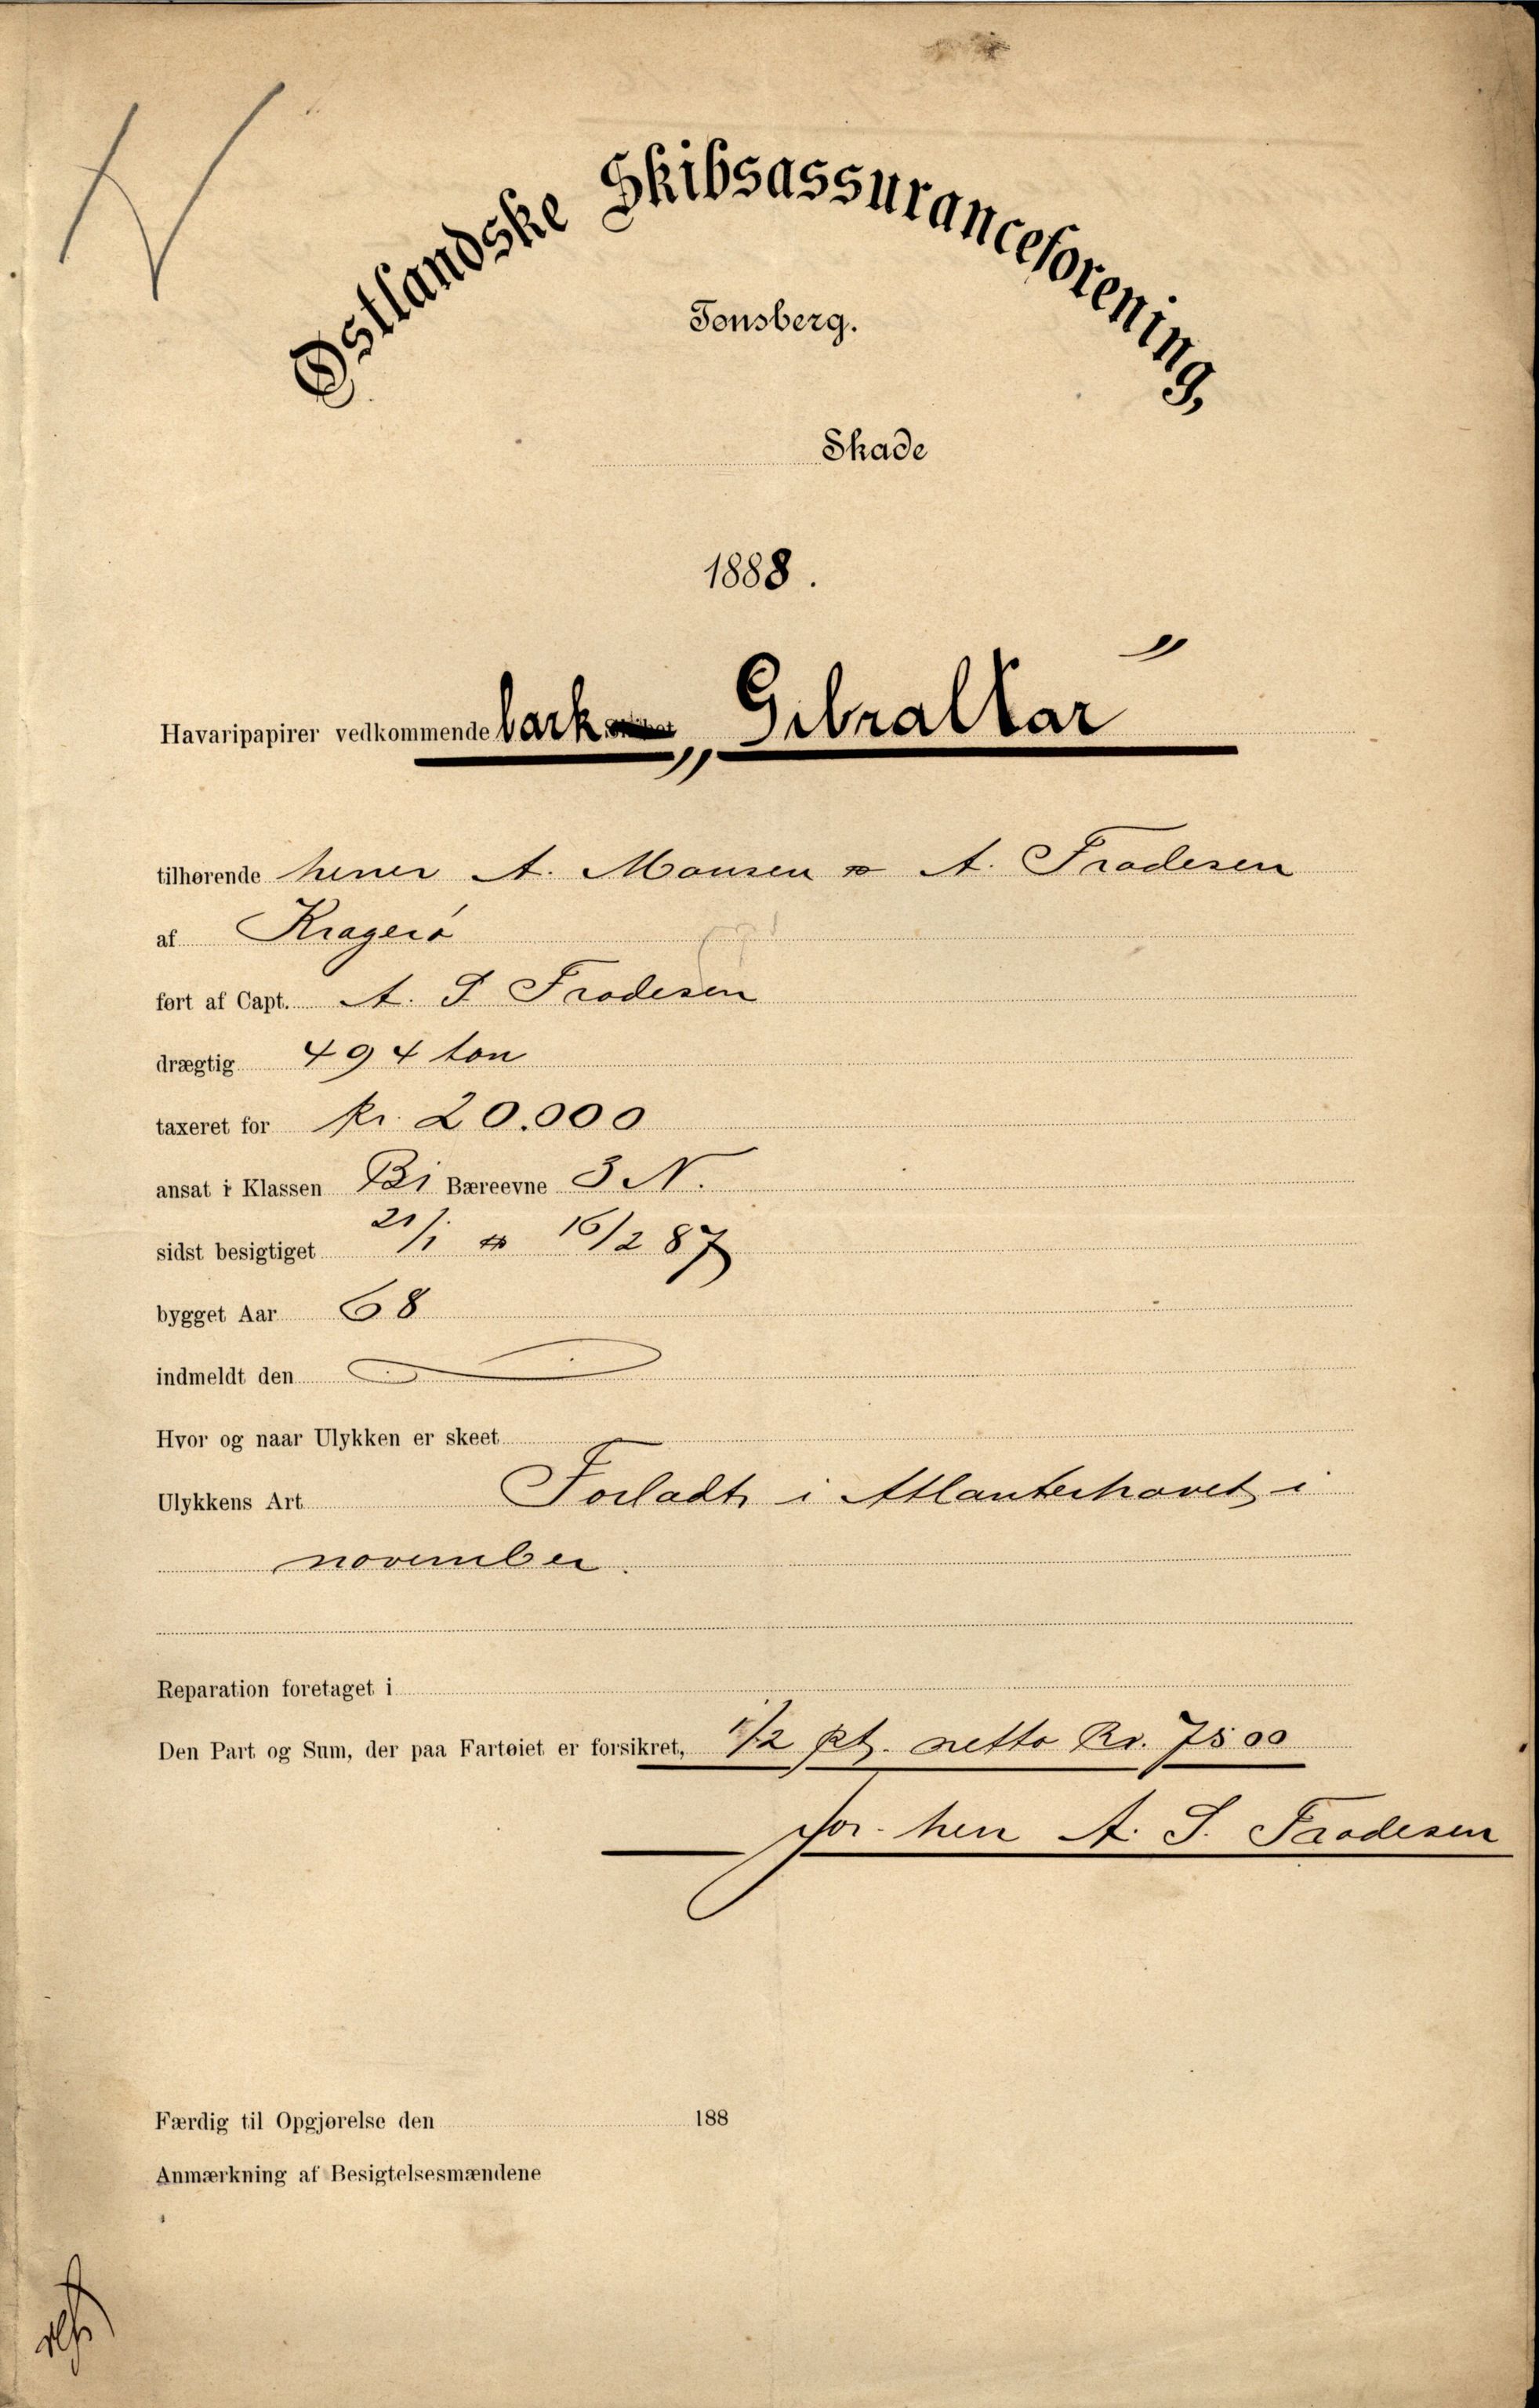 Østlandske Skibsassuranceforening,
Tonsberg.
Skade
1888.
Havaripapirer vedkommende bark „Gibraltar"
tilhørende herrer A. Monsen & A. Frodesen
af Kragerø
ført af Capt. A. S Frodesen
drægtig 494 ton
taxeret for Kr. 20.000
ansat i Klassen B1 Bæreevne 3 N.
sidst besigtiget 21/1 & 16/2 87
bygget Aar 68
indmeldt den
Hvor og naar Ulykken er skeet
Ulykkens Art Forladt i Atlanterhavet i
november.
Reparation foretaget i
Den Part og Sum, der paa Fartøiet er forsikret, 1/2 pt. netto Kr. 7500
for herr A. S. Frodesen
Færdig til Opgjørelse den 188
Anmærkning af Besigtelsesmændene